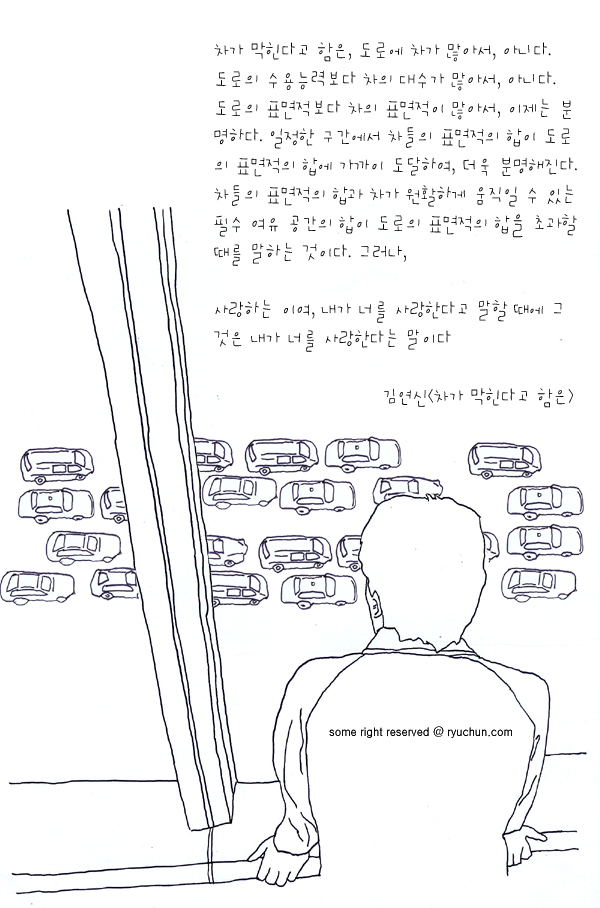 차가 막힌다고 함은, 도로에 차가 많아서, 아니다.
도로의 수용능력보다 차의 대수가 많아서, 아니다.
도로의 표면적보다 차의 표면적이 많아서, 이제는 분
명하다. 일정한 구간에서 차들의 표면적의 합이 도로
의 표면적의 합에 가까이 도달하여, 더욱 분명해진다.
차들의 표면적의 합과 차가 원활하게 움직일 수 있는
필수 여유 공간의 합이 도로의 표면적의 합을 초과할
때를 말하는 것이다. 그러나,
사랑하는 이여, 내가 너를 사랑한다고 말할 때에 그
것은 내가 너를 사랑한다는 말이다
김연신<차가 막힌다고 함은>
some right reserved @ ryuchun.com